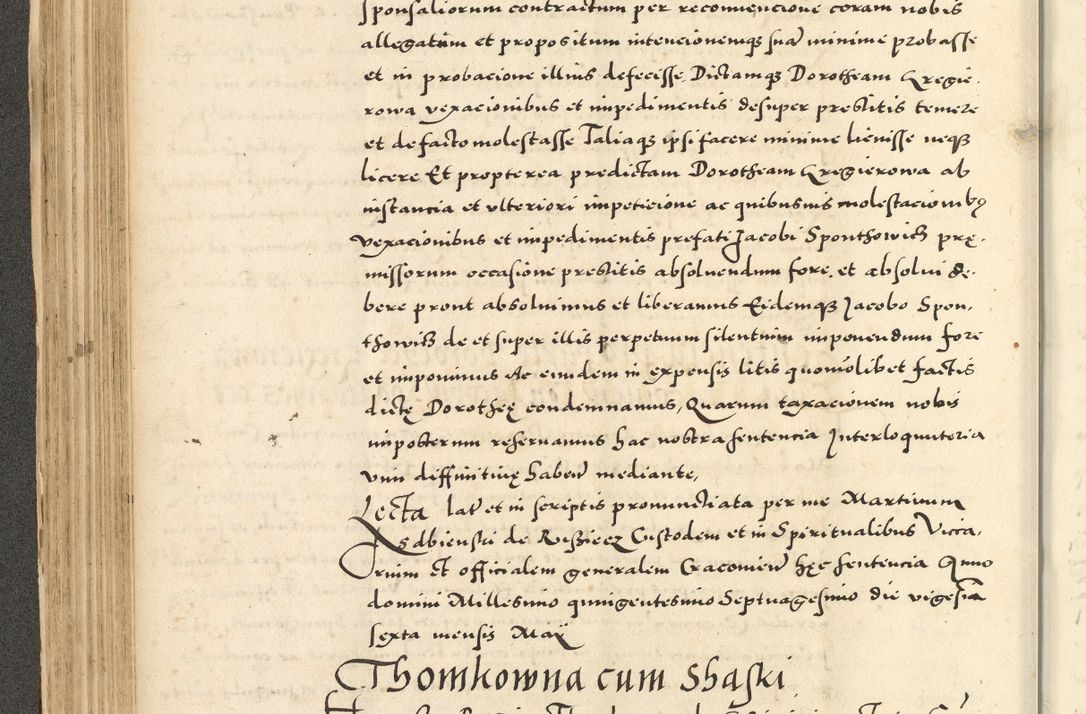 sponsaliorum contractum per reconuencione coram nobis
allegatum et propositum intencionemqз sua minime probasse
et in probacione illius defecisse Dictamqз Dorotheam Gregie-
rowa vexacionibus et impedimentis desuper prestitis temere
et defacto molestasse Taliaqз ipsi facere minime licuisse neqз
licere Et propterea predictam Dorotheam Gregierowa ab
instancia et vlteriori impeticione ac quibusuis molestacionibus
vexacionibus et impedimentis prefati Jacobi Sponthowicz prę-
missorum occasione prestitis absoluendum fore, et absolui de-
bere prout absoluimus et liberamus Eidemqз Jacobo Spon-
thowicz de et super illis perpetuum silentium imponendum fore
et imponimus Ac eundem in expensis litis quomolibet factis
dictę Dorotheę condemnamus, Quarum taxacionem nobis
imposterum reseruamus hac nostra sentencia Interloqutoria
vim diffinitiuę haben mediante,
Lecta lat et in scriptis pronunctiata per me Martinum
Izdbienski de Rusziecz Custodem et in Spiritualibus Vicca-
rium et officialem generalem Cracouien hęc sentencia Anno
domini Millesimo quingentesimo Septuagesimo die vigesima
sexta mensis Maij
Thomkowna cum Shaski